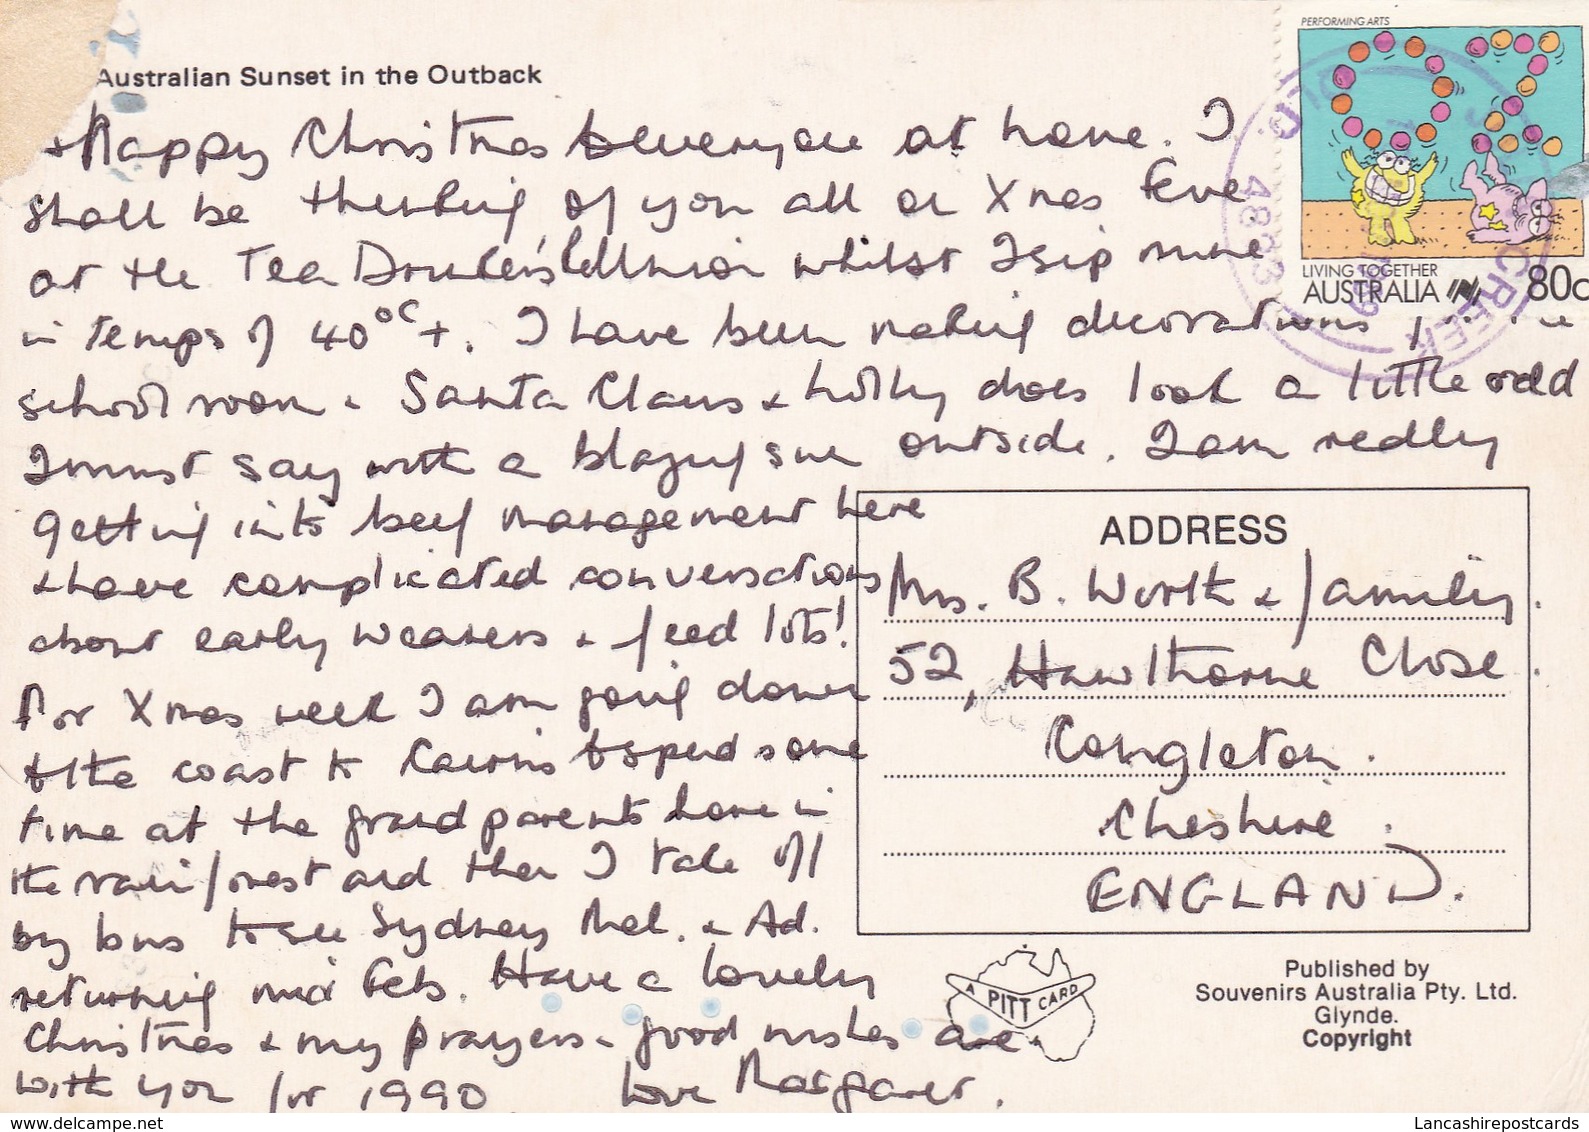 PERFORMING ARTS
Australian Sunset in the Outback
+ Happy Christmas to everyone at home. I
shall be thinking of you all on Xmas Eve
at the Tea Drinkers' Reunion whilst I sip mine
in temps of 40°C+. I have been making decorations
school room + Santa Claus + holly does look a little odd
I must say with a blazing sun outside. I am really
getting into beef management here
+ have complicated conversations
about early weaners + feed lots!
For Xmas week I am going down
to the coast to Cairns to spend some
time at the grandparents home in
the rainforest and then I take off
by bus to see Sydney Mel. + Ad.
returning mid Feb. Have a lovely
Christmas + my prayers + good wishes are
with you for 1990. Love Margaret.
LIVING TOGETHER
AUSTRALIA 80c
CREEK
QLD.
ADDRESS
Mrs. B. Worth + family.
52, Hawthorne Close.
Congleton.
Cheshire.
ENGLAND.
A PITT CARD
Published by
Souvenirs Australia Pty. Ltd.
Glynde.
Copyright
delcampe.net
Lancashirepostcards